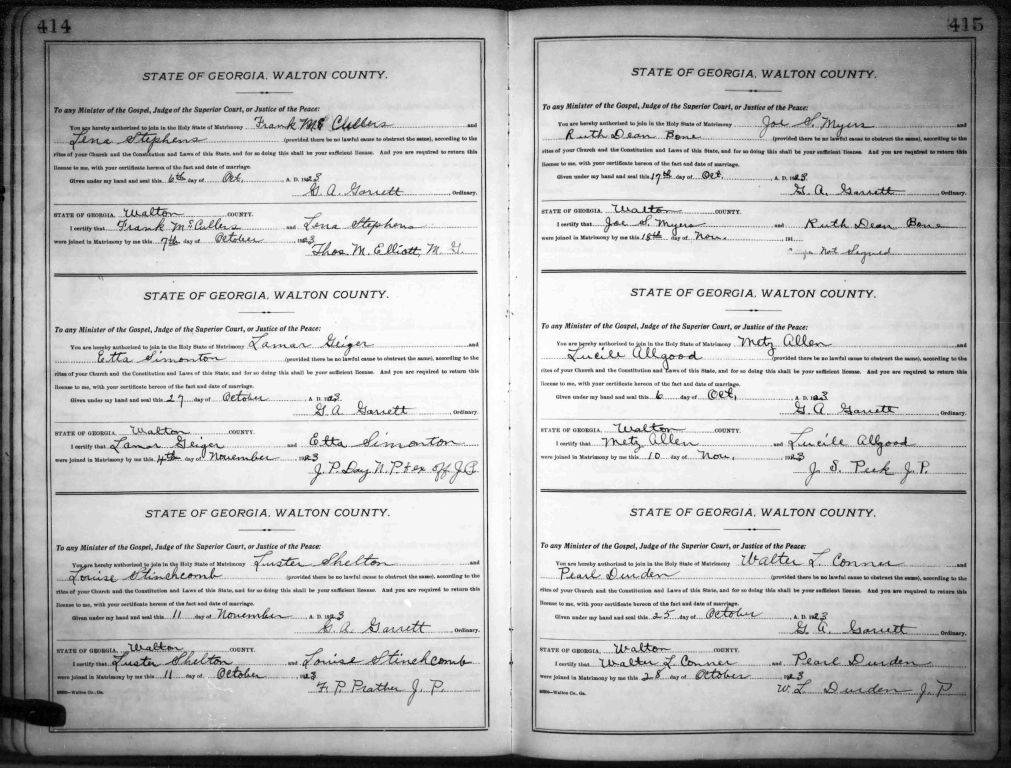 414
STATE OF GEORGIA, WALTON COUNTY.
To any Minister of the Gospel, Judge of the Superior Court, or Justice of the Peace:
You are hereby authorized to join in the Holy State of Matrimony Frank Mc Cullers and
Lena Stephens (provided there be no lawful cause to obstruct the same), according to the
rites of your Church and the Constitution and Laws of this State, and for so doing this shall be your sufficient license. And you are required to return this
license to me, with your certificate hereon of the fact and date of marriage.
Given under my hand and seal this 6th day of Oct. A. D. 1923
G. A. Garrett, Ordinary.
STATE OF GEORGIA, Walton COUNTY.
I certify that Frank Mc Cullers and Lena Stephens
were joined in Matrimony by me this 7th day of October 1923
Thos. M. Elliott, M. G.
STATE OF GEORGIA, WALTON COUNTY.
To any Minister of the Gospel, Judge of the Superior Court, or Justice of the Peace:
You are hereby authorized to join in the Holy State of Matrimony Lamar Geiger and
Etta Simonton (provided there be no lawful cause to obstruct the same), according to the
rites of your Church and the Constitution and Laws of this State, and for so doing this shall be your sufficient license. And you are required to return this
license to me, with your certificate hereon of the fact and date of marriage.
Given under my hand and seal this 27 day of October A. D. 1923
G. A. Garrett, Ordinary.
STATE OF GEORGIA, Walton COUNTY.
I certify that Lamar Geiger and Etta Simonton
were joined in Matrimony by me this 4th day of November 1923
J. P. Day N. P. & ex off J. P.
STATE OF GEORGIA, WALTON COUNTY.
To any Minister of the Gospel, Judge of the Superior Court, or Justice of the Peace:
You are hereby authorized to join in the Holy State of Matrimony Luster Shelton and
Louise Stinchcomb (provided there be no lawful cause to obstruct the same), according to the
rites of your Church and the Constitution and Laws of this State, and for so doing this shall be your sufficient license. And you are required to return this
license to me, with your certificate hereon of the fact and date of marriage.
Given under my hand and seal this 11 day of November A. D. 1923
G. A. Garrett, Ordinary.
STATE OF GEORGIA, Walton COUNTY.
I certify that Luster Shelton and Louise Stinchcomb
were joined in Matrimony by me this 11 day of October 1923
F. P. Prather J. P.
Walton Co., Ga.
415
STATE OF GEORGIA, WALTON COUNTY.
To any Minister of the Gospel, Judge of the Superior Court, or Justice of the Peace:
You are hereby authorized to join in the Holy State of Matrimony Joe S. Myers and
Ruth Dean Bone (provided there be no lawful cause to obstruct the same), according to the
rites of your Church and the Constitution and Laws of this State, and for so doing this shall be your sufficient license. And you are required to return this
license to me, with your certificate hereon of the fact and date of marriage.
Given under my hand and seal this 17th day of Oct. A. D. 1923
G. A. Garrett, Ordinary.
STATE OF GEORGIA, Walton COUNTY.
I certify that Joe S. Myers and Ruth Dean Bone
were joined in Matrimony by me this 18th day of Nov. 191
Not Signed
STATE OF GEORGIA, WALTON COUNTY.
To any Minister of the Gospel, Judge of the Superior Court, or Justice of the Peace:
You are hereby authorized to join in the Holy State of Matrimony Metz Allen and
Lucile Allgood (provided there be no lawful cause to obstruct the same), according to the
rites of your Church and the Constitution and Laws of this State, and for so doing this shall be your sufficient license. And you are required to return this
license to me, with your certificate hereon of the fact and date of marriage.
Given under my hand and seal this 6 day of Oct. A. D. 1923
G. A. Garrett, Ordinary.
STATE OF GEORGIA, Walton COUNTY.
I certify that Metz Allen and Lucile Allgood
were joined in Matrimony by me this 10 day of Nov. 1923
J. S. Peek J. P.
STATE OF GEORGIA, WALTON COUNTY.
To any Minister of the Gospel, Judge of the Superior Court, or Justice of the Peace:
You are hereby authorized to join in the Holy State of Matrimony Walter L. Conner and
Pearl Durden (provided there be no lawful cause to obstruct the same), according to the
rites of your Church and the Constitution and Laws of this State, and for so doing this shall be your sufficient license. And you are required to return this
license to me, with your certificate hereon of the fact and date of marriage.
Given under my hand and seal this 25 day of October A. D. 1923
G. A. Garrett, Ordinary.
STATE OF GEORGIA, Walton COUNTY.
I certify that Walter L. Conner and Pearl Durden
were joined in Matrimony by me this 28 day of October 1923
W. L. Durden J. P.
Walton Co., Ga.